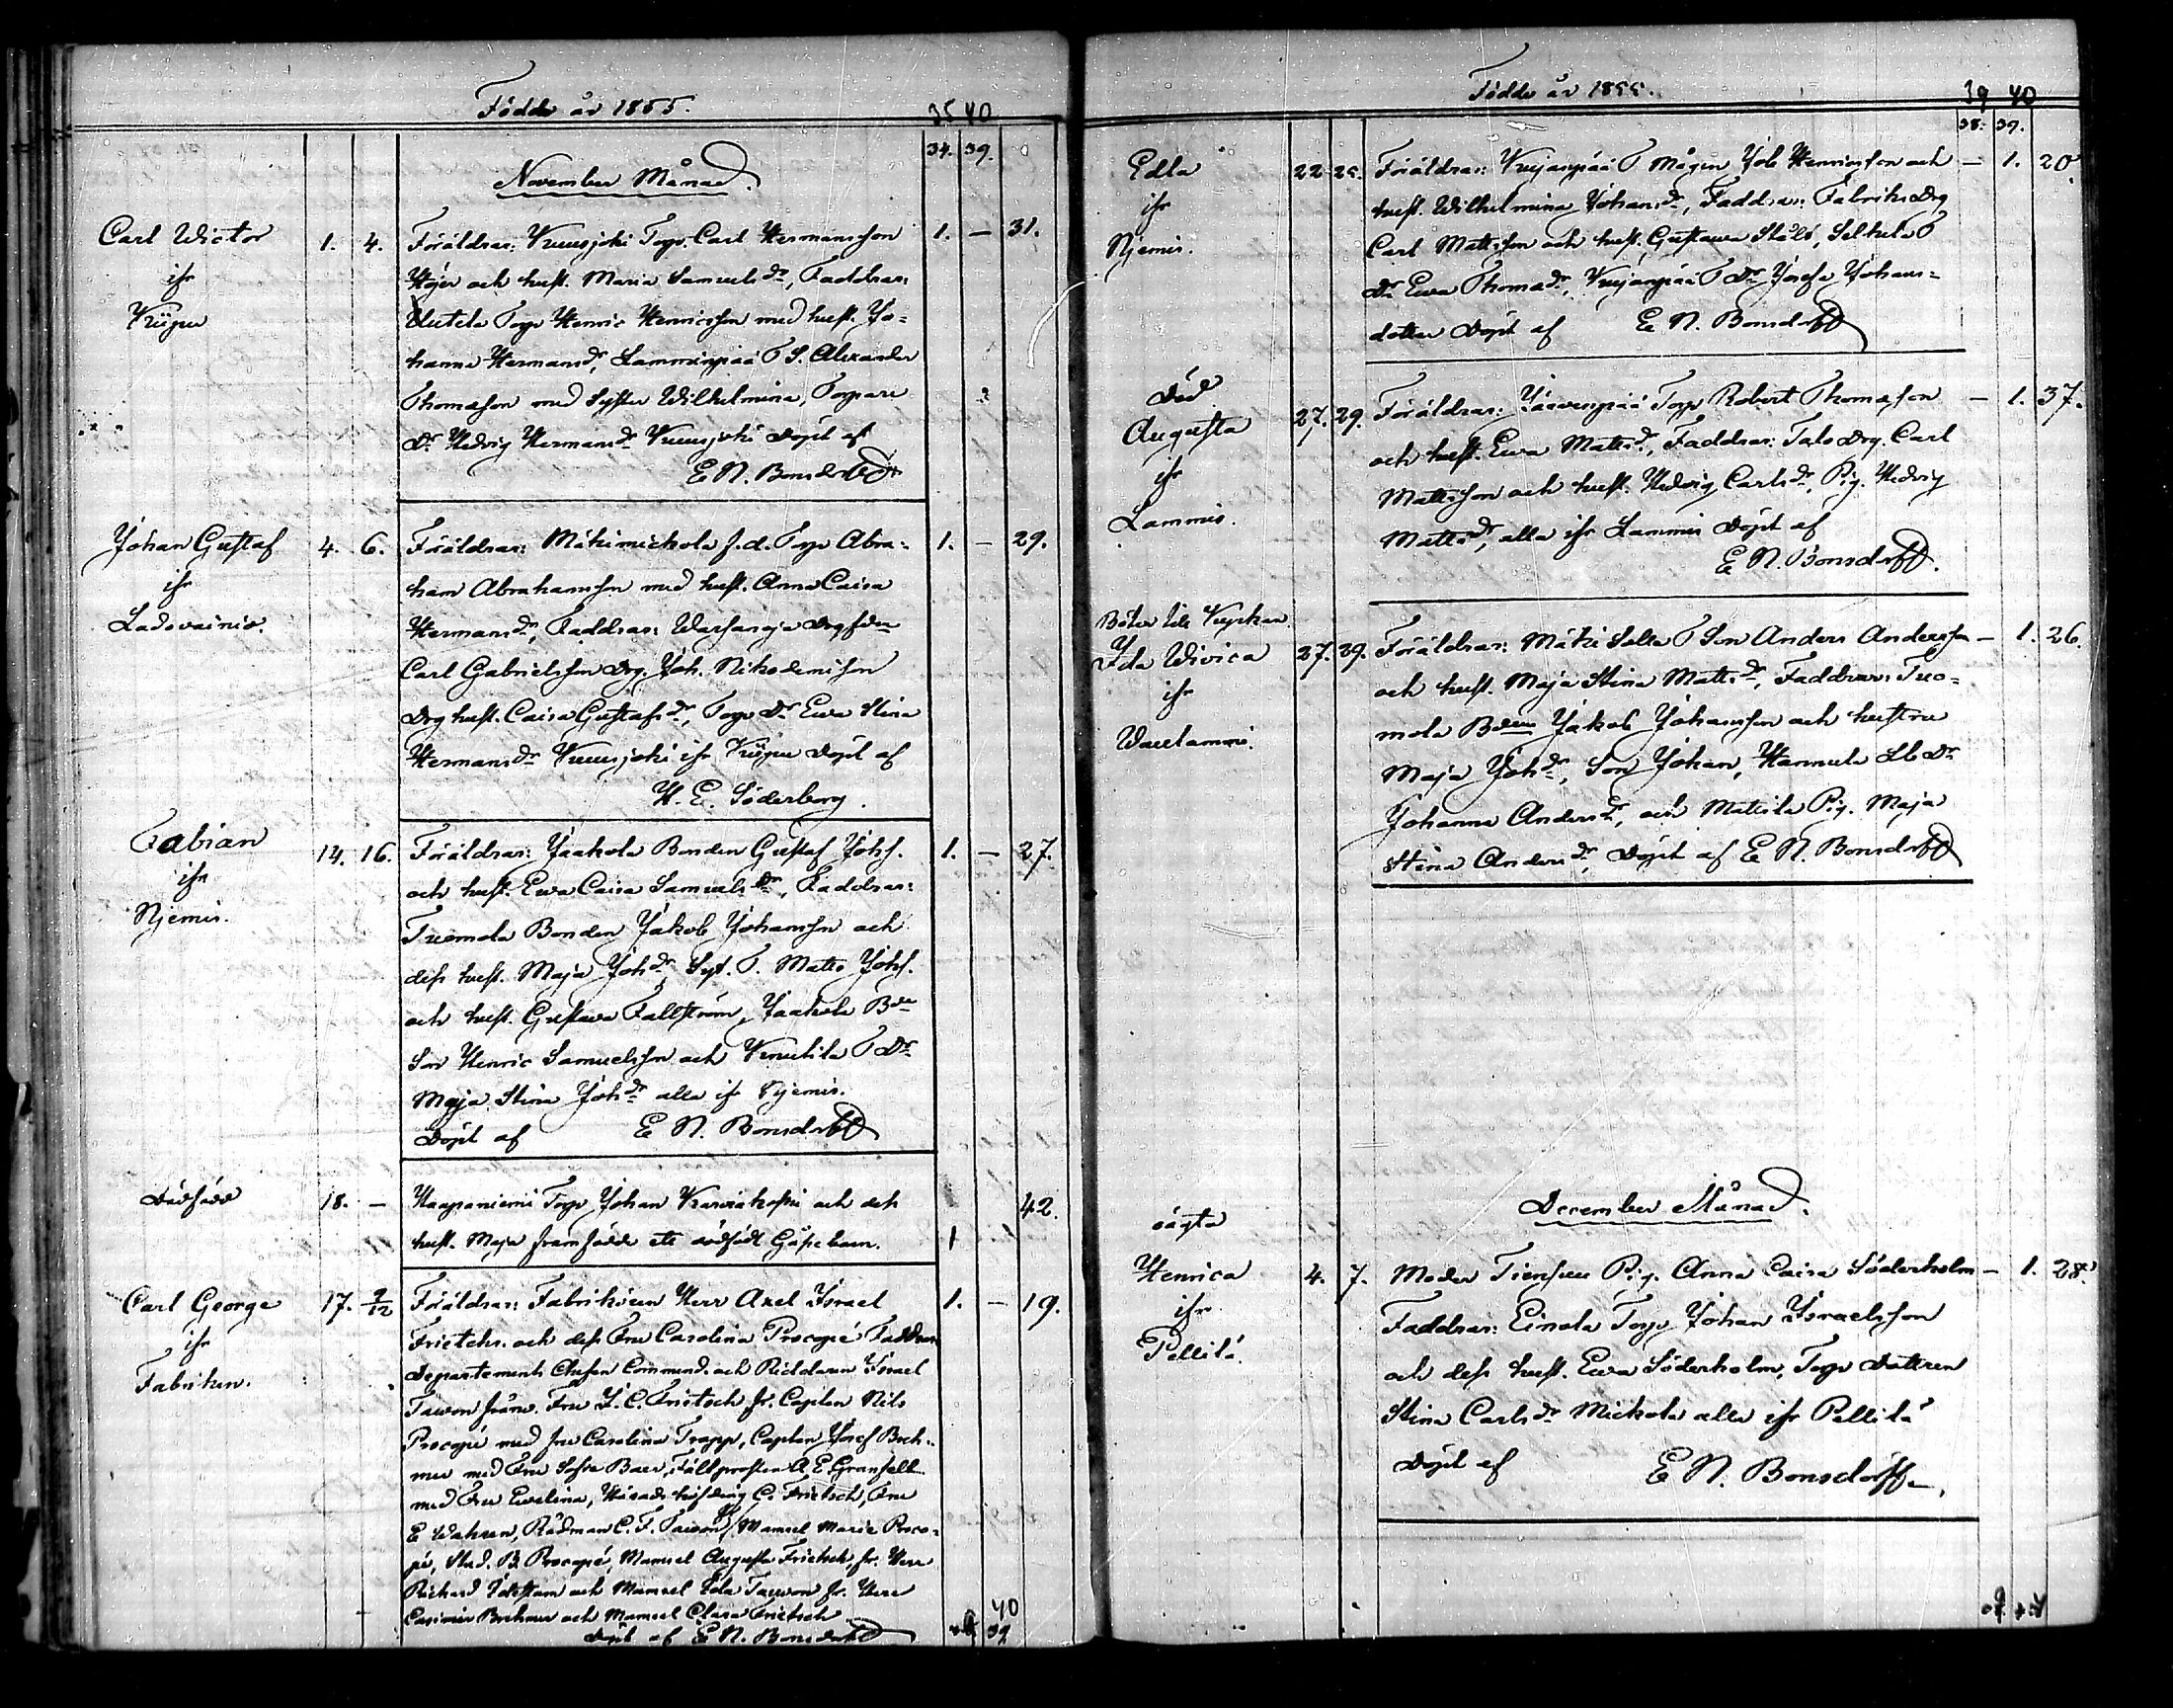 Födde år 1855.
35 40
34. 39.
November Månad.
Carl Wictor
ifr
1. 4. Föräldrar: Kuusjoki Torp. Carl Hermansson 1. — 31.
Höjer och hust. Maria Samuelsdr, Faddrar:
Torp Henric Henricsson med hust. Jo-
hanna Hermansdr, Lamminpää T S. Alexander
Thomasson med Syster Wilhelmina, Torpare
Dr Hedvig Hermansdr Kuusjoki Döpt af
E. N. Bonsdorff
Johan Gustaf
ifr
Ladovainio.
4. 6. Föräldrar: Mäkimickola f.d. Torp Abra- 1. — 29.
ham Abrahamsson med hust. Anna Caisa
Hermansdr, Faddrar:
Carl Gabrielsson Drg. Joh. Nikodemisson
Drg hust. Caisa Gustafsdr, Torp Dr Ewa Stina
Hermansdr Kuusjoki ifr Döpt af
H. E. Söderborg.
Fabian
ifr
Njemis.
14. 16. Föräldrar: Jaakola Bonden Gustaf Johs. 1. — 27.
och hust. Ewa Caisa Samuelsdr, Faddrar:
Tuomola Bonden Jakob Johansson och
dess hust. Maja Johdr, Syt. T. Matts Johs.
och hust. Gustava Fallström, Jaakola Bdn
Son Henric Samuelsson och Knuutila T Dr
Maja Stina Johdr alla ifr Njemis.
Döpt af E. N. Bonsdorff
Dödfödd
18. — Haapaniemi Torp Johan och dess 42.
hust. Maja framfödde ett dödfödt Gåssebarn. 1
Carl George
ifr
Fabriken.
17. 2/12 Föräldrar: Fabrikören Herr Axel Israel 1. — 19.
Frietsch och dess Fru Carolina Procopé Faddrar
Departements Chefen Commend. och Riddaren Israel
Fru J. C. Frietsch, hr. Capiten Nils
Procopé med fru Carolina Trapp, Capten Josef Breh-
mer med Fru Sofia Baer, Fältprosten A. E. Granfelt
med Fru Ewelina, Häradshöfding C. Frietsch, Fru
E Wahren, Rådman C. F. Mamsel Marie Proco-
pé, Stud. B. Procopé, Mamsel Augusta Frietsch, hr. Herr
Richard Idestam och Mamsel Ida hr. Herr
Casimir Brehmer och Mamsel Clara Frietsch
Döpt af E. N. Bonsdorff
40
39
Födde år 1855.
39 40
38. 39.
Edla
ifr
Njemis.
22. 25. Föräldrar: T Mågen Job Henricsson och — 1. 20.
hust. Wilhelmina Johansdr, Faddrar: Fabriks Drg
Carl Mattsson och hust. Gustava Ståls, T
Dr Ewa Thomadr, T Dr Josefa Johans-
dotter Döpt af E. N. Bonsdorff
Död
Augusta
ifr
Lammis.
27. 29. Föräldrar: Järvenpää Torp Robert Thomasson — 1. 37.
och hust. Ewa Mattsdr, Faddrar: Talo Drg. Carl
Mattsson och hust. Hedvig Carlsdr, Pig. Hedvig
Mattsdr, alla ifr Lammis Döpt af
E. N. Bonsdorff.
Böter till Kyrkan
Ida Wivica
ifr
27. 29. Föräldrar: Mäki T Son Anders Andersson — 1. 26.
och hust. Maja Stina Mattsdr, Faddrar: Tuo-
mola Bden Jakob Johansson och hustru
Maja Johdr, Son Johan, Hannula Dr
Johanna Andersdr, och Mattila Pig. Maja
Stina Andersdr, Döpt af E. N. Bonsdorff
December Månad.
oägta
Henrica
ifr
Pellilä.
4. 7. Moder Tiensuu Pig. Anna Caisa Söderholm — 1. 28.
Faddrar: Einola Torp Johan Israelsson
och dess hust. Ewa Söderholm, Torp Dottren
Stina Carlsdr Mickola alla ifr Pellilä
Döpt af E. N. Bonsdorff.